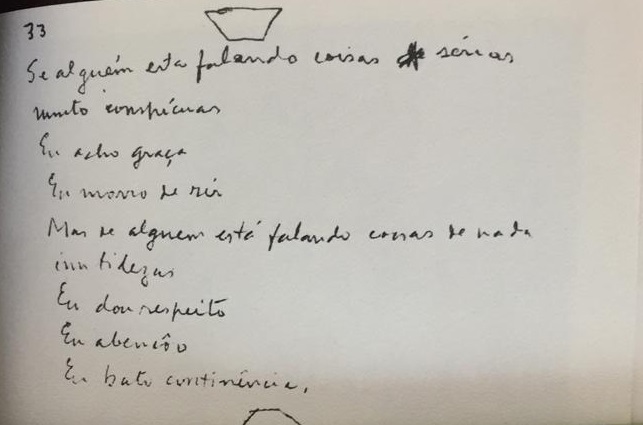 33
Se alguém esta falando coisas sérias
muito conspícuas
Eu acho graça
Eu morro de rir
Mas se alguem está falando coisas de nada
inutidezas
Eu dou respeito
Eu abenčôo
Eu bato continência.